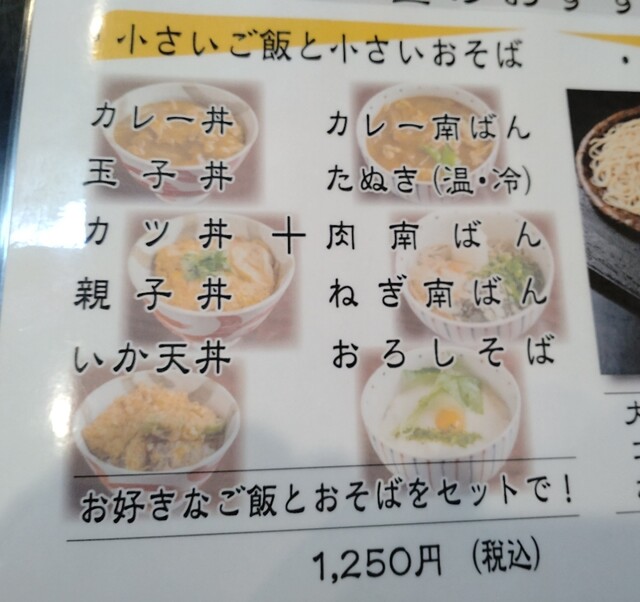 ・小さいご飯と小さいおそば
カレー丼 カレー南ばん
玉子丼 たぬき (温・冷)
カツ丼 + 肉南ばん
親子丼 ねぎ南ばん
いか天丼 おろしそば
お好きなご飯とおそばをセットで!
1,250円 (税込)